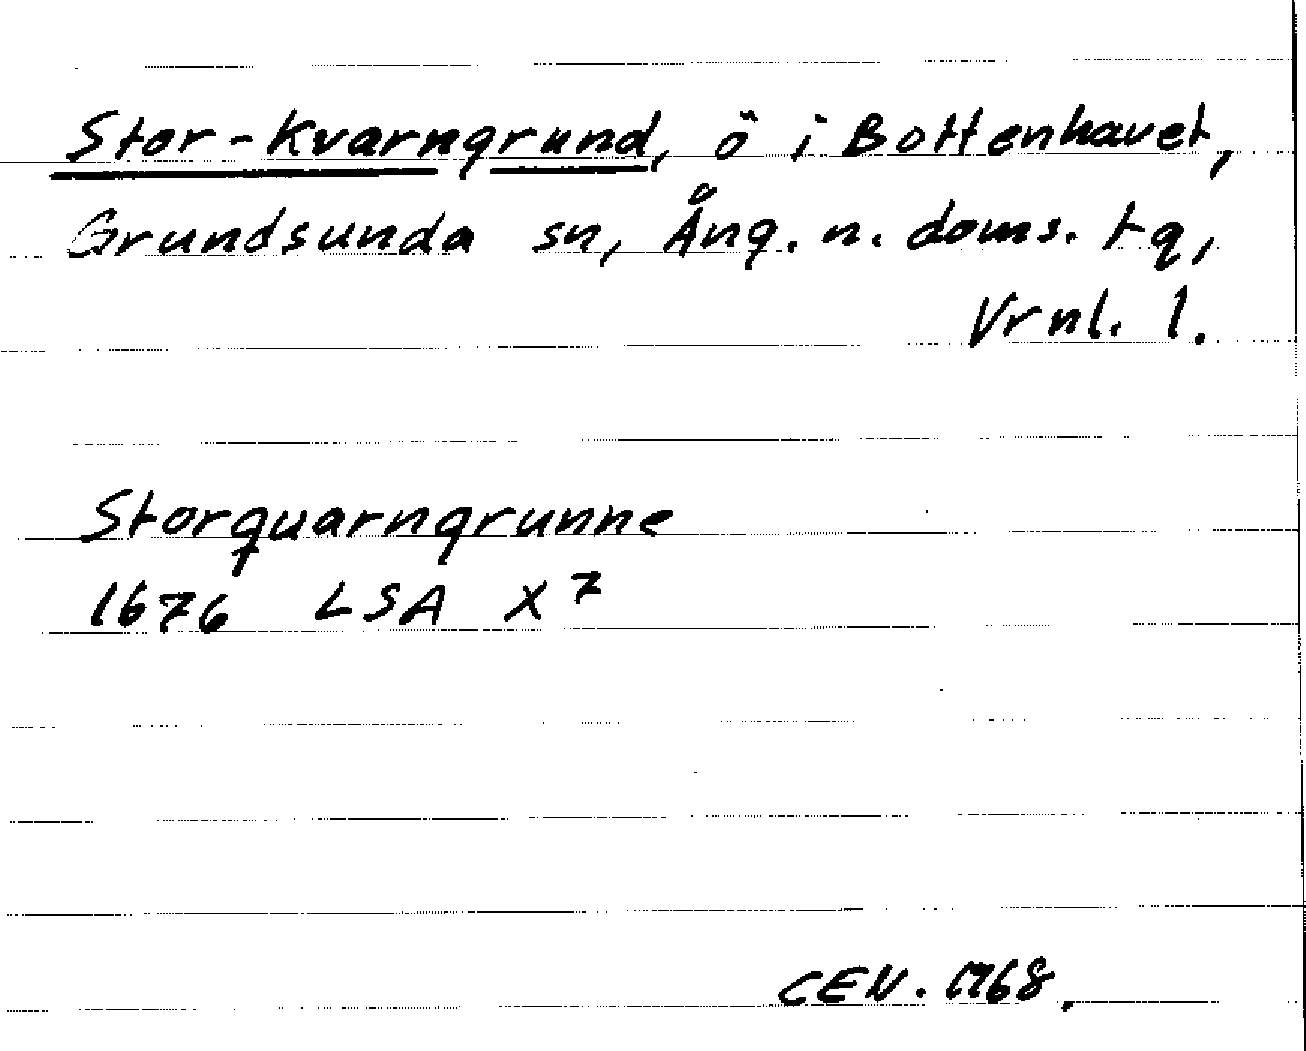 Stor-Kvarngrund, ö i Bottenhavet,
Grundsunda sn, Ång. n. doms. tg,
Vrnl. l.
Storquarngrunne
1676 LSA X 7
CEN. 1968.